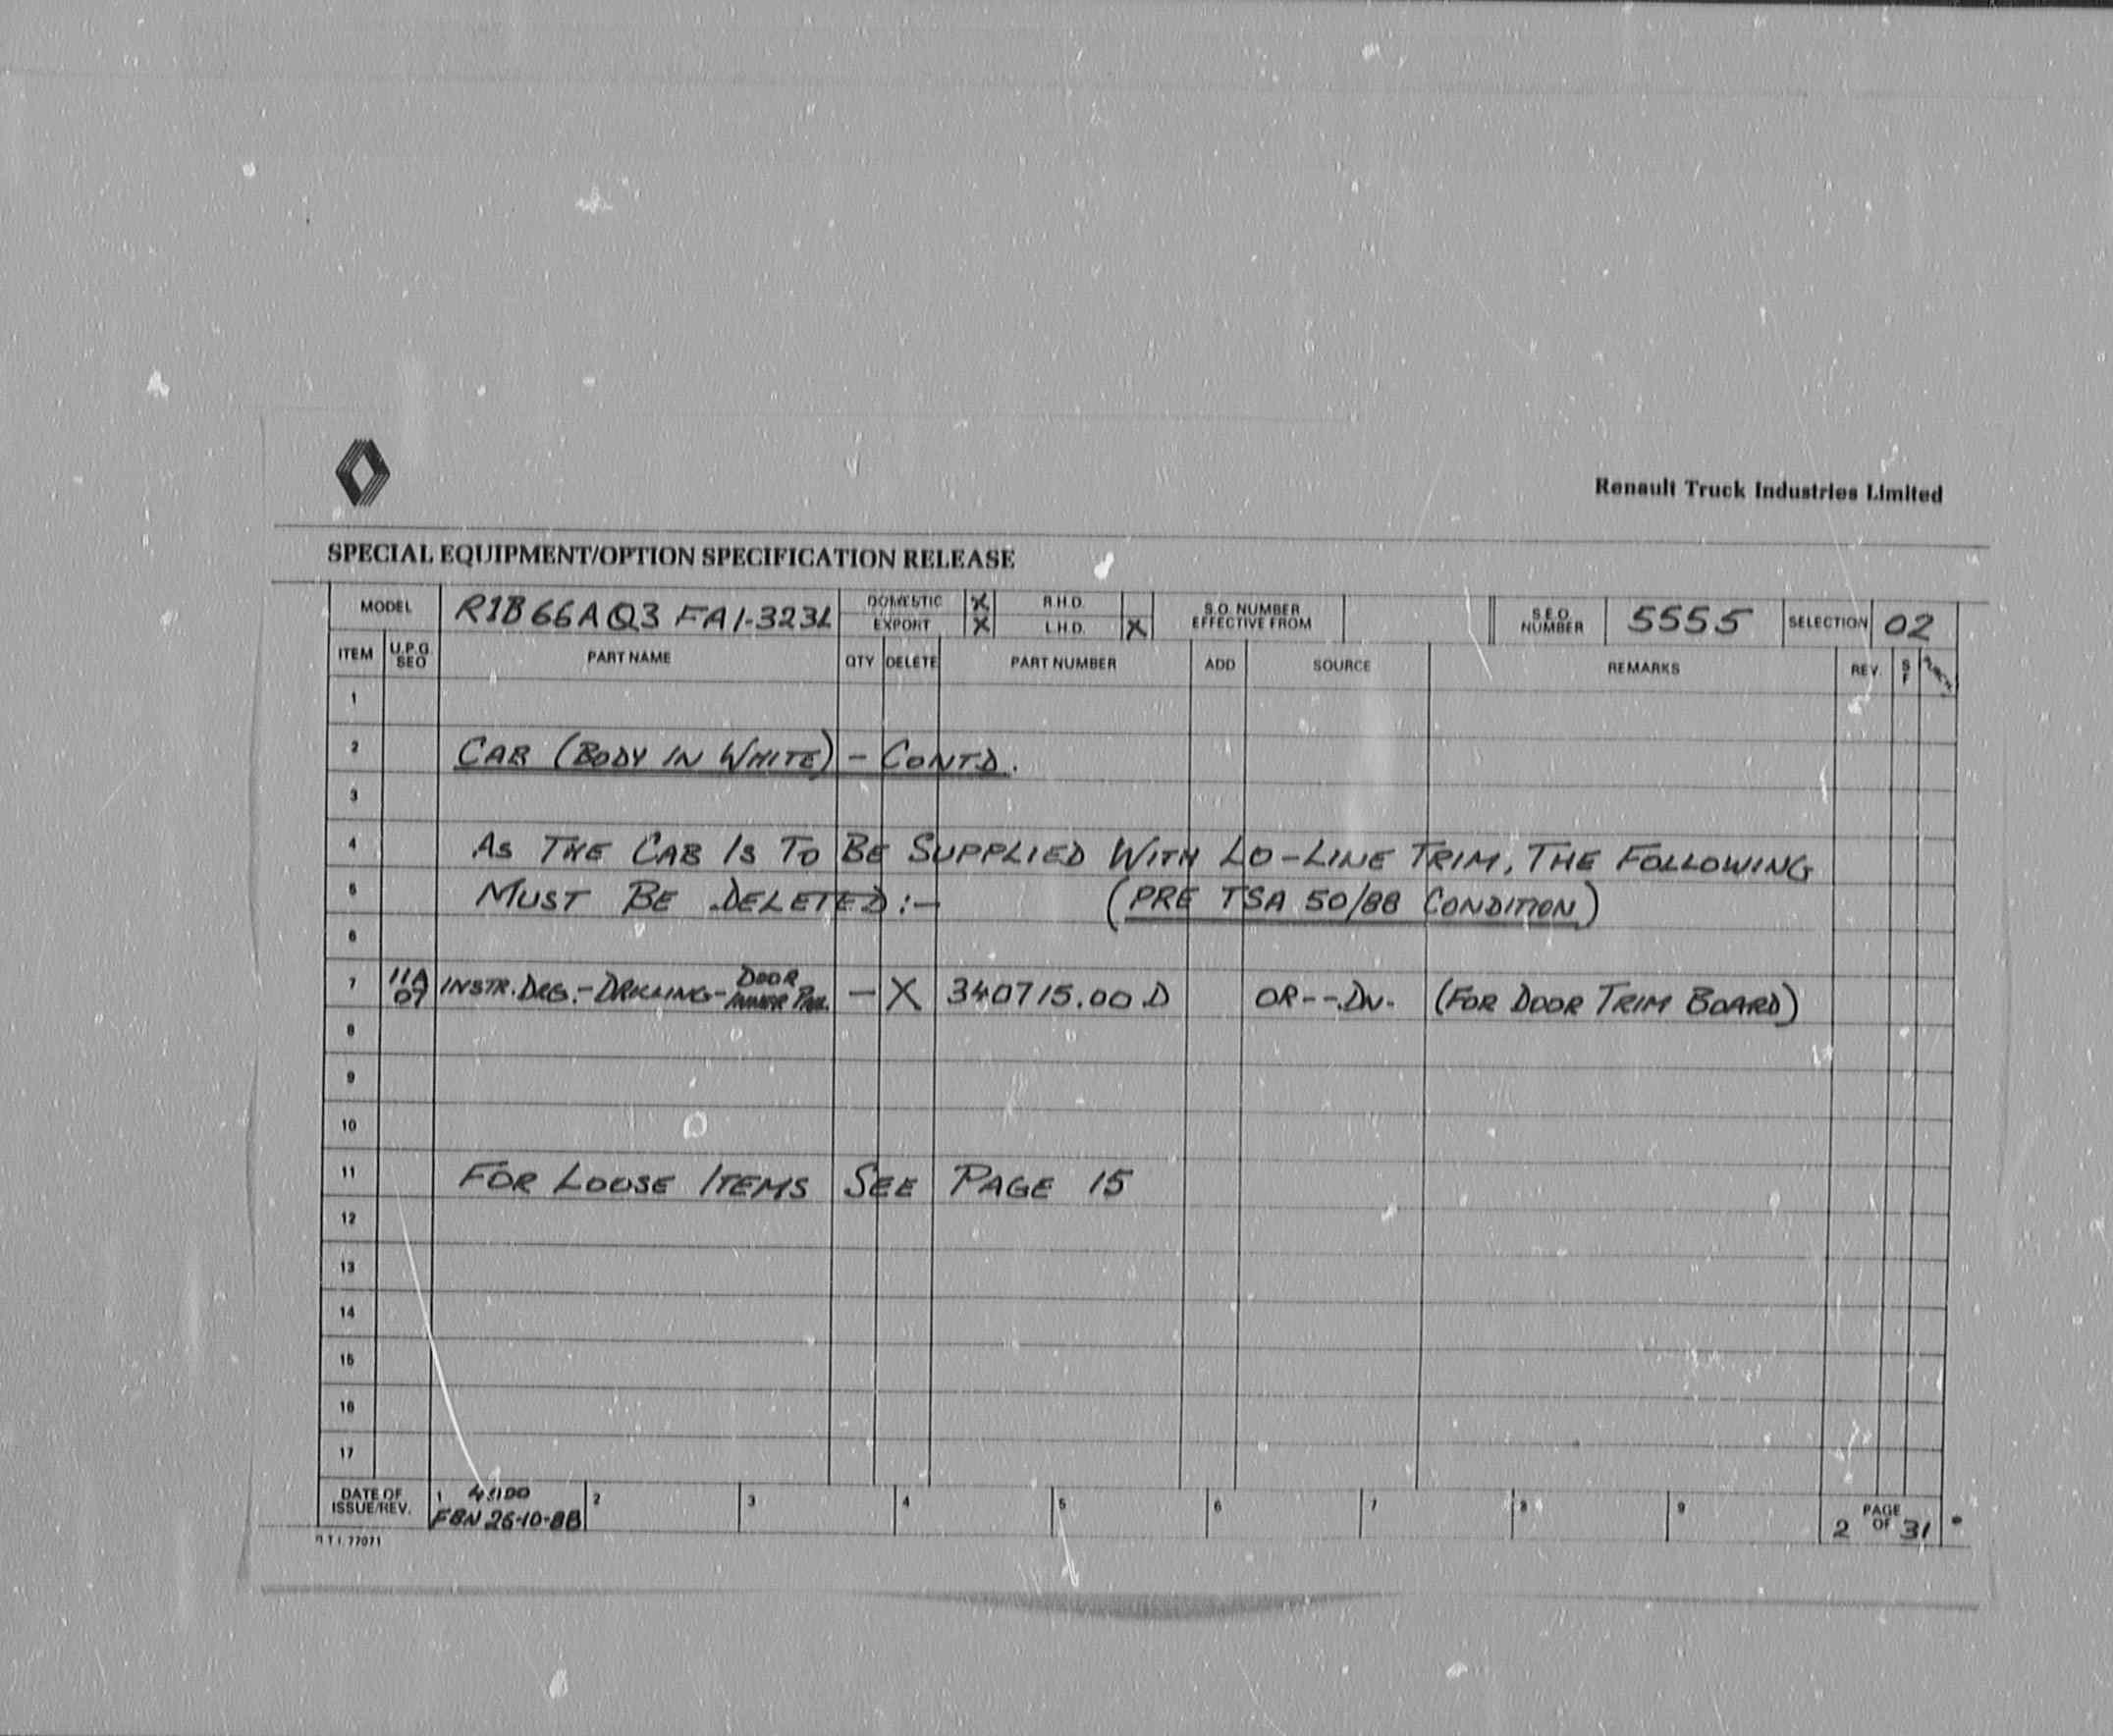 Renault Truck Industries Limited
SPECIAL EQUIPMENT/OPTION SPECIFICATION RELEASE
MODEL R1B66AQ3 FA1-323L DOMESTIC X R.H.D. S.O. NUMBER EFFECTIVE FROM S.E.O. NUMBER 5555 SELECTION 02
EXPORT X L.H.D. X
ITEM U.P.G. SEO PART NAME QTY DELETE PART NUMBER ADD SOURCE REMARKS REV. S F
1
2 CAB (BODY IN WHITE) - CONTD.
3
4 AS THE CAB IS TO BE SUPPLIED WITH LO-LINE TRIM, THE FOLLOWING
5 MUST BE DELETED:- (PRE TSA 50/88 CONDITION)
6
7 11A 07 INSTR. DRG.-DRILLING-DOOR INNER PNL. - X 340715.00 D OR--.DN. (FOR DOOR TRIM BOARD)
8
9
10
11 FOR LOOSE ITEMS SEE PAGE 15
12
13
14
15
16
17
DATE OF ISSUE/REV. 1 FBN 26-10-88 2 3 4 5 6 7 8 9 PAGE 2 OF 31
R.T.I. 77071